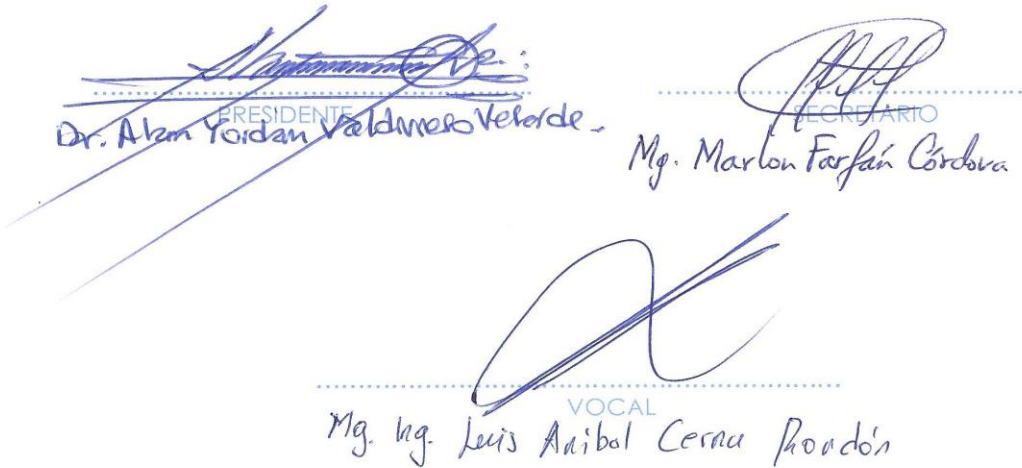 PRESIDENTE
Dr. Alan Yordan Valdiviezo Velarde.
SECRETARIO
Mg. Marlon Farfán Córdova
VOCAL
Mg. Ing. Luis Anibal Cerna Rondón